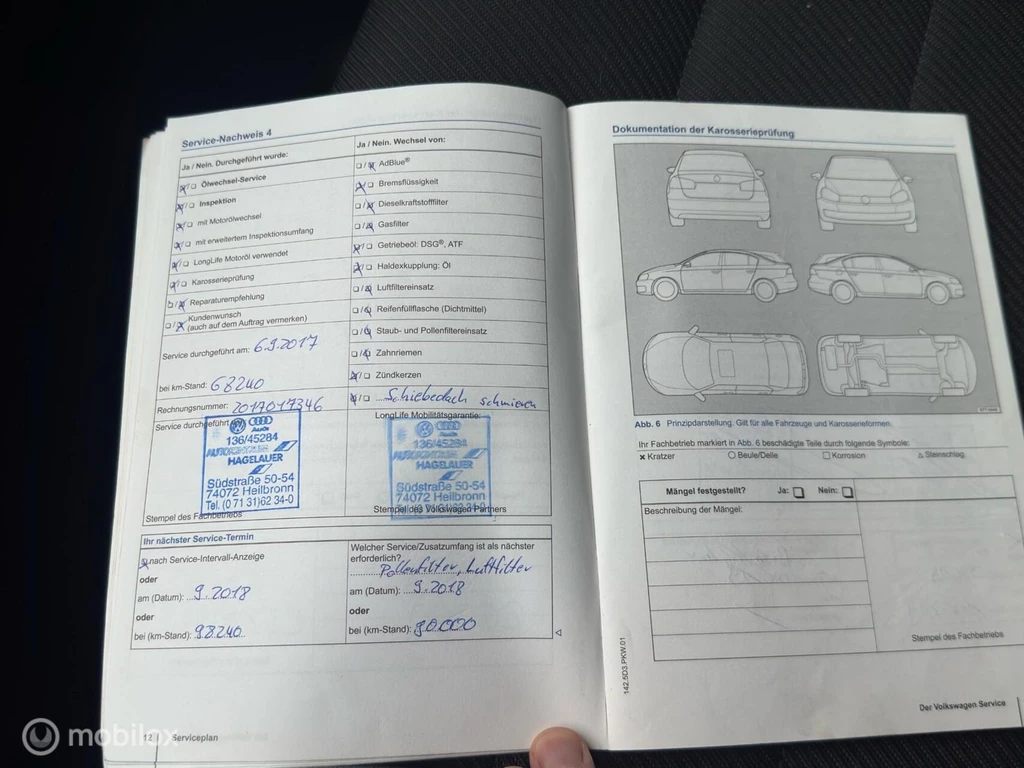 Service-Nachweis 4
Ja / Nein. Durchgeführt wurde:
Ölwechsel-Service
Inspektion
mit Motorölwechsel
mit erweitertem Inspektionsumfang
LongLife Motoröl verwendet
Karosserieprüfung
Reparaturempfehlung
Kundenwunsch
(auch auf dem Auftrag vermerken)
Service durchgeführt am: 6.9.2017
bei km-Stand: 68240
Rechnungsnummer: 2017017346
Service durchgeführt
Audi
136/45284
HAGELAUER
Südstraße 50-54
74072 Heilbronn
Tel. (0 71 31) 62 34-0
Stempel des Fachbetriebs
Ja / Nein. Wechsel von:
AdBlue®
Bremsflüssigkeit
Dieselkraftstofffilter
Gasfilter
Getriebeöl: DSG®, ATF
Haldexkupplung: Öl
Luftfiltereinsatz
Reifenfüllflasche (Dichtmittel)
Staub- und Pollenfiltereinsatz
Zahnriemen
Zündkerzen
Schiebedach schmieren
LongLife Mobilitätsgarantie:
Audi
136/45284
HAGELAUER
Südstraße 50-54
74072 Heilbronn
Stempel des Volkswagen Partners
Ihr nächster Service-Termin
nach Service-Intervall-Anzeige
oder
am (Datum): 9.2018
oder
bei (km-Stand): 98240
Welcher Service/Zusatzumfang ist als nächster
erforderlich?
Pollenfilter, Luftfilter
am (Datum): 9.2018
oder
bei (km-Stand): 90.000
12 Serviceplan
Dokumentation der Karosserieprüfung
Abb. 6 Prinzipdarstellung: Gilt für alle Fahrzeuge und Karosserieformen.
Ihr Fachbetrieb markiert in Abb. 6 beschädigte Teile durch folgende Symbole:
Kratzer
Beule/Delle
Korrosion
Steinschlag
Mängel festgestellt? Ja: Nein:
Beschreibung der Mängel:
Stempel des Fachbetriebs
142.5D3.PKW.01
Der Volkswagen Service
mobilox